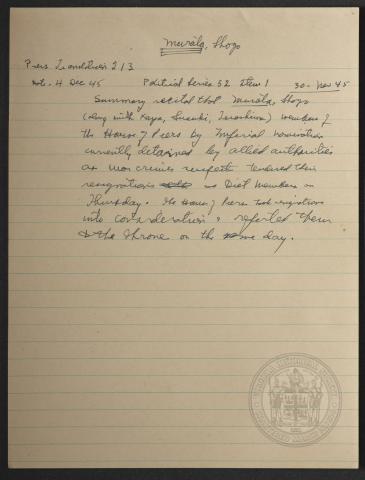 Murata, Shozo
Press Translation 213
Date. 4 Dec 45 Political Series 52 Item 1 30 Nov 45
Summary recital that Murata, Shozo
(along with Kaya, Suzuki, Terashima) members of
the House of Peers by Imperial nomination
currently detained by allied authorities
as war crimes suspects tendered their
resignations as Diet Members on
Thursday. The House of Peers took resignations
into consideration & reported them
to the Throne on the same day.